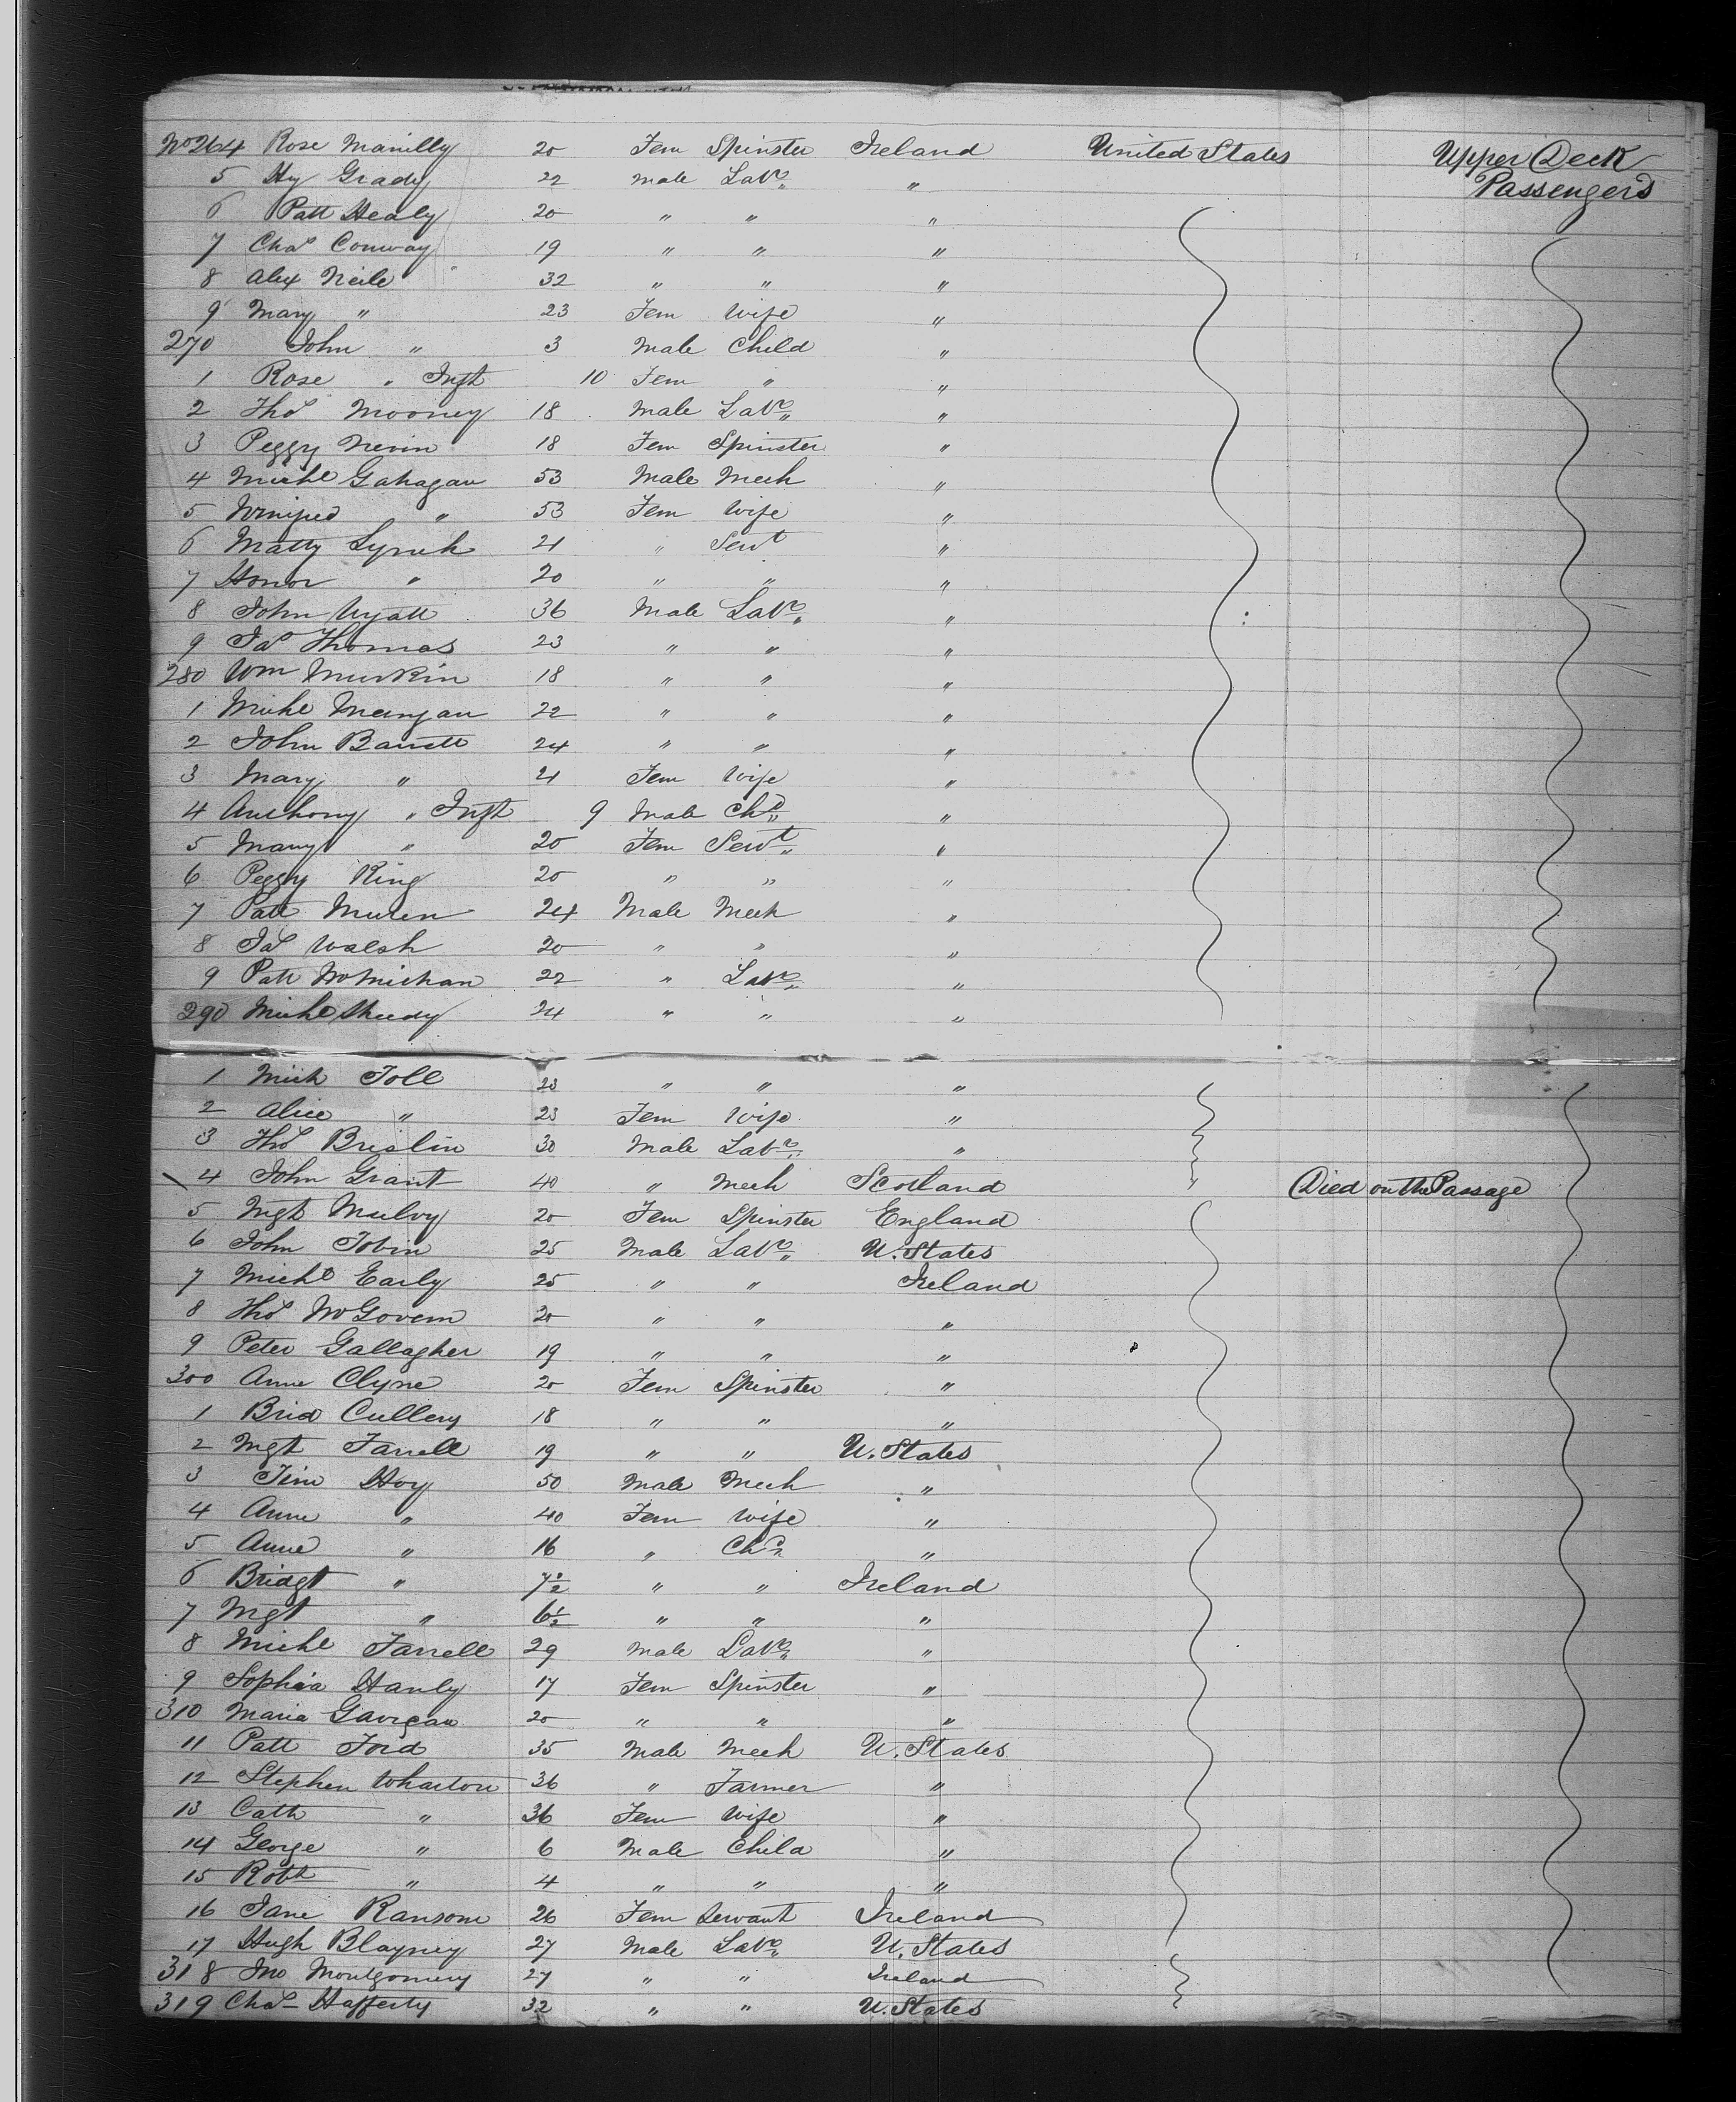 No 264 Rose Manilly 20 Fem Spinster Ireland United States Upper Deck
5 Hy Grady 22 Male Labr " Passengers
6 Patt Healy 20 " " "
7 Chas Conway 19 " " "
8 Alex Neile 32 " " "
9 Mary " 23 Fem Wife "
270 John " 3 Male Child "
1 Rose " Inft 10 Fem " "
2 Thos Mooney 18 Male Labr "
3 Peggy Nevin 18 Fem Spinster "
4 Michl Gahagan 53 Male Mech "
5 Winifred " 53 Fem Wife "
6 Matty Lynch 21 " Servt "
7 Honor " 20 " " "
8 John Wyatt 36 Male Labr "
9 Jas Thomas 23 " " "
280 Wm Murkin 18 " " "
1 Michl Mangan 22 " " "
2 John Barrett 24 " " "
3 Mary " 21 Fem Wife "
4 Anthony " Inft 9 Male Chd "
5 Mary " 20 Fem Servt "
6 Peggy King 20 " " "
7 Patt Muren 24 Male Mech "
8 Jas Walsh 20 " " "
9 Patt McMichan 22 " Labr "
290 Michl Sheedy 24 " " "
1 Mich Toll 23 " " "
2 Alice " 23 Fem Wife "
3 Thos Breslin 30 Male Labr "
4 John Grant 40 " Mech Scotland Died on the Passage
5 Mgt Mulvy 20 Fem Spinster England
6 John Tobin 25 Male Labr U. States
7 Michl Early 25 " " Ireland
8 Thos McGovern 20 " " "
9 Peter Gallagher 19 " " "
300 Anne Clyne 20 Fem Spinster "
1 Brid Cullery 18 " " "
2 Mgt Farrell 19 " " U. States
3 Tim Hoy 50 Male Mech "
4 Anne " 40 Fem Wife "
5 Anne " 16 " Chd "
6 Bridgt " 7½ " " Ireland
7 Mgt " 6½ " " "
8 Michl Farrell 29 Male Labr "
9 Sophia Hanly 17 Fem Spinster "
310 Maria Gavigan 20 " " "
11 Patt Ford 35 Male Mech U. States
12 Stephen Wharton 36 " Farmer "
13 Cath " 36 Fem Wife "
14 George " 6 Male Child "
15 Robt " 4 " " "
16 Jane Ransom 26 Fem Servant Ireland
17 Hugh Blayney 27 Male Labr U. States
318 Jno Montgomery 27 " " Ireland
319 Chas Hafferty 32 " " U. States